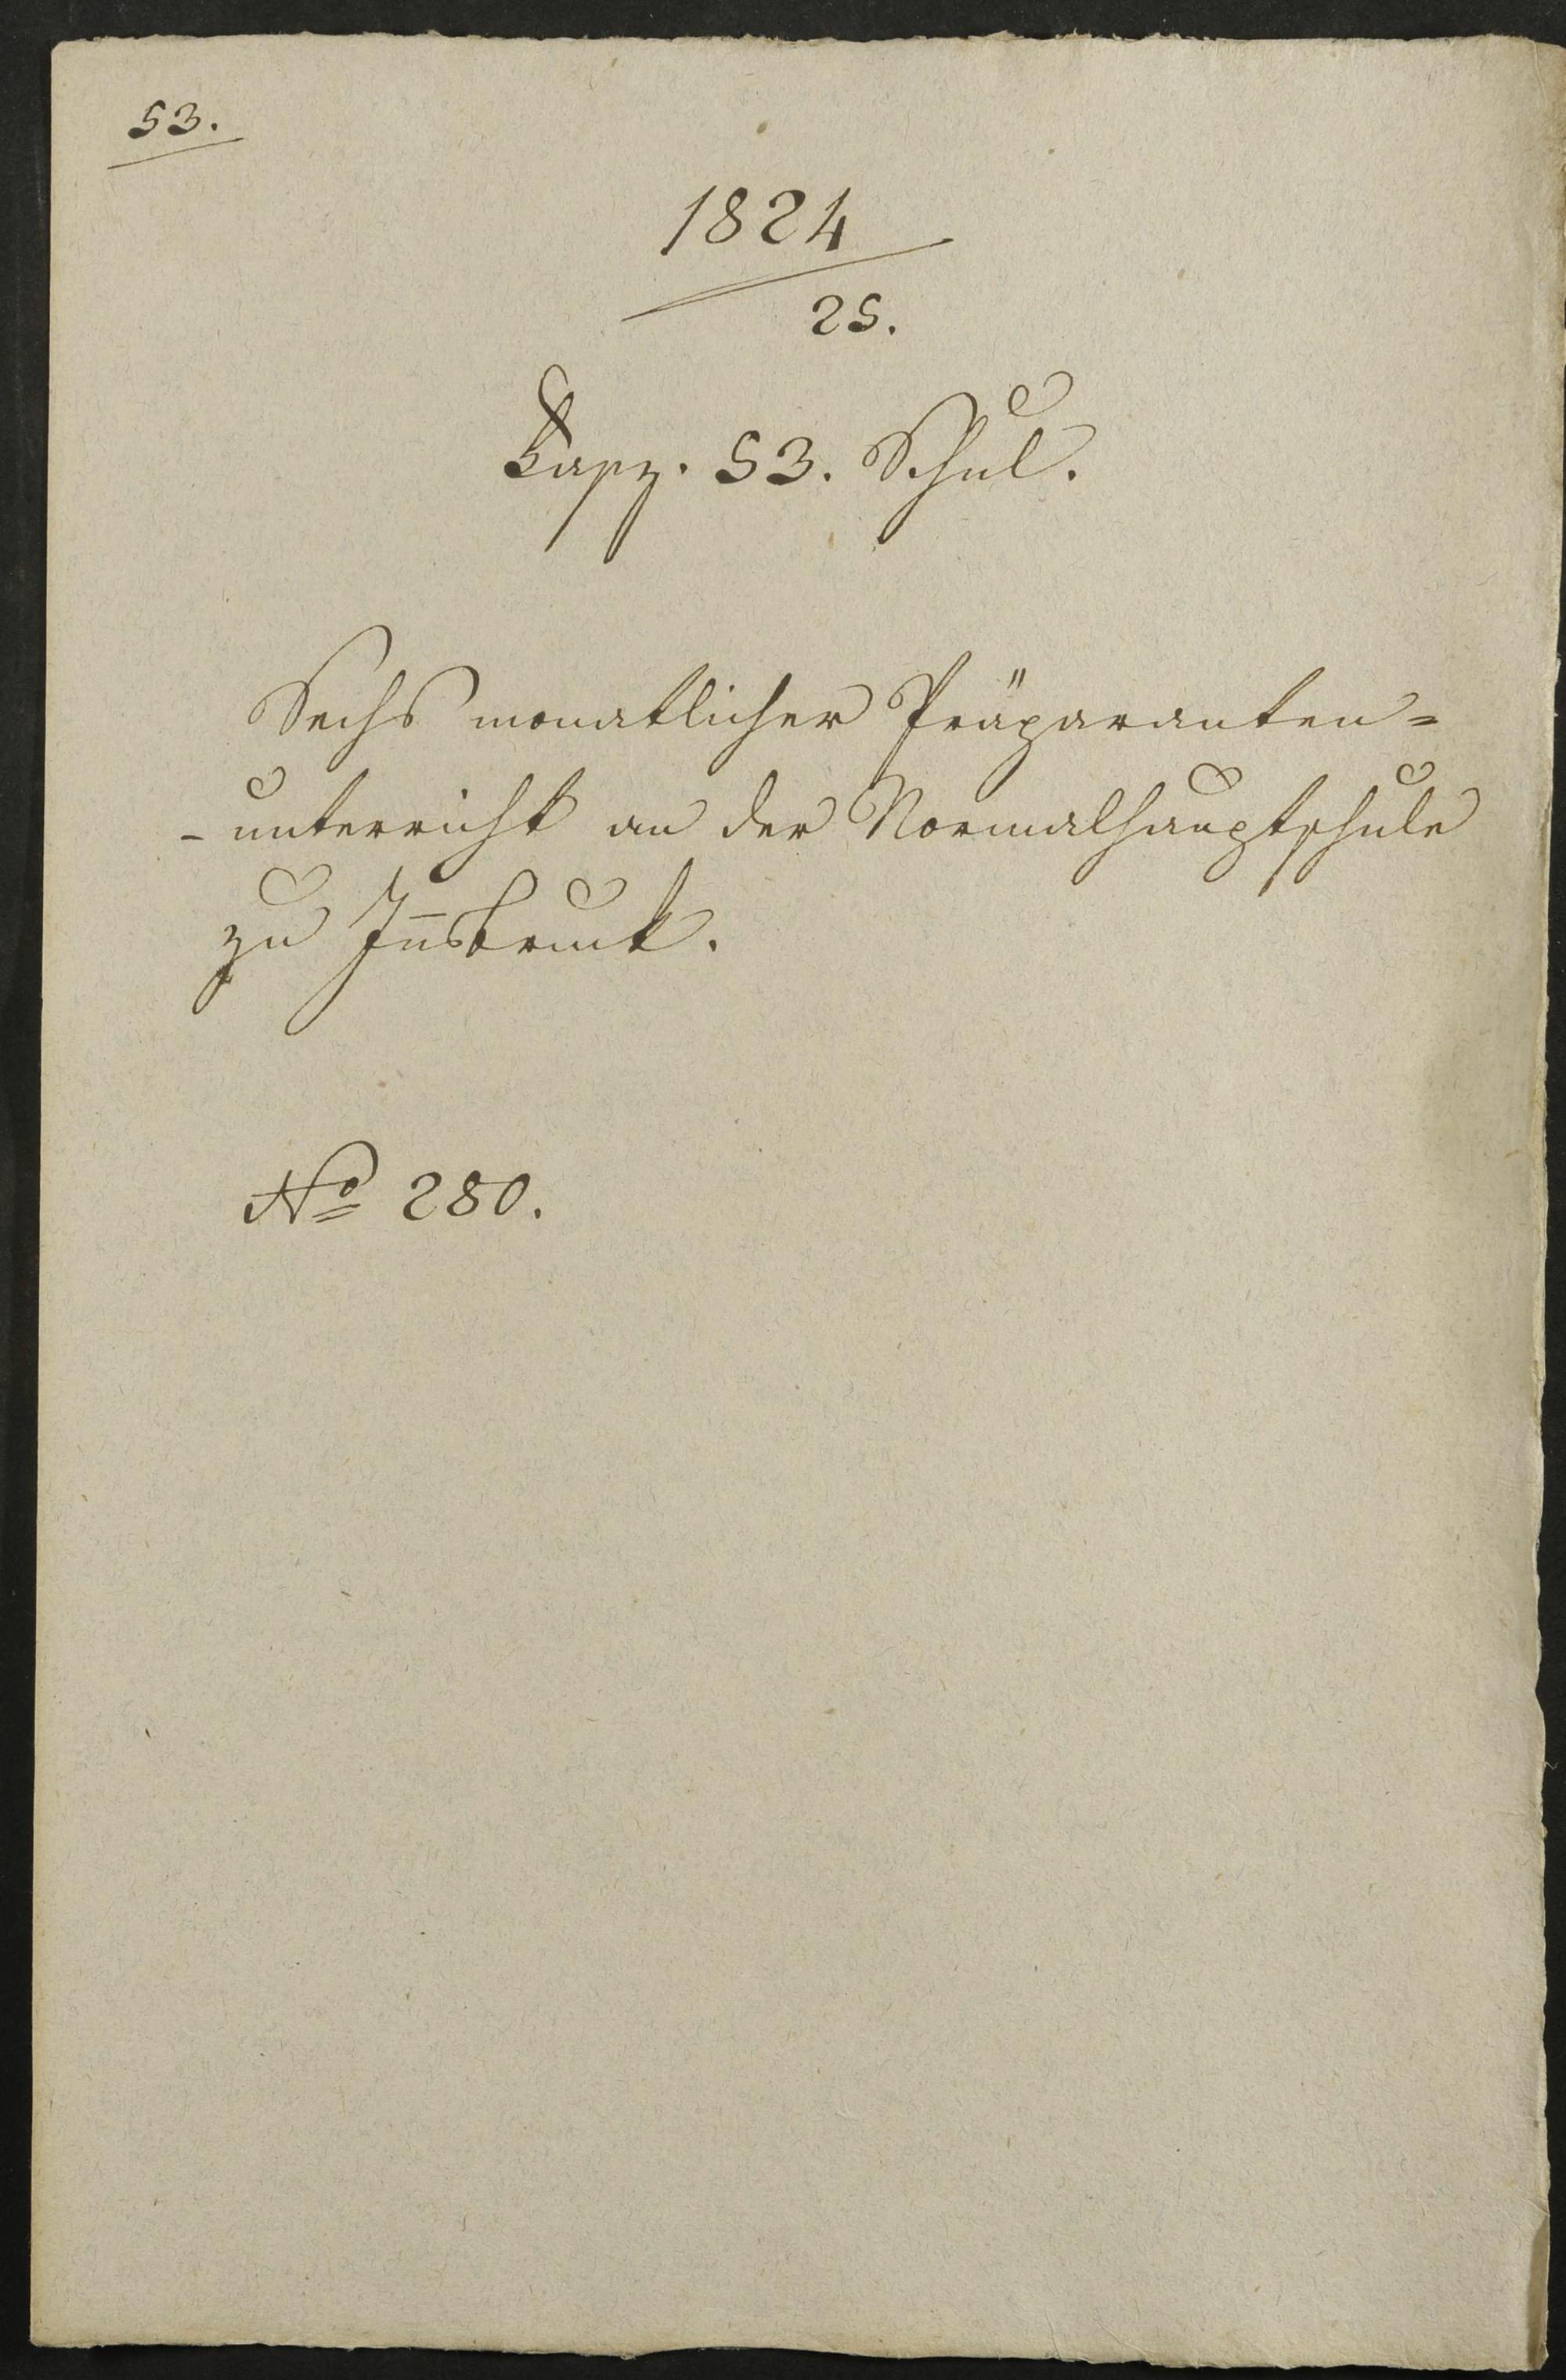 53.
1824
25.
Fasz. 53. Schul.
Sechs monatlicher Präparanten=
-unterricht an der Normalhauptschule
zu In̄sbruck.
No 280.